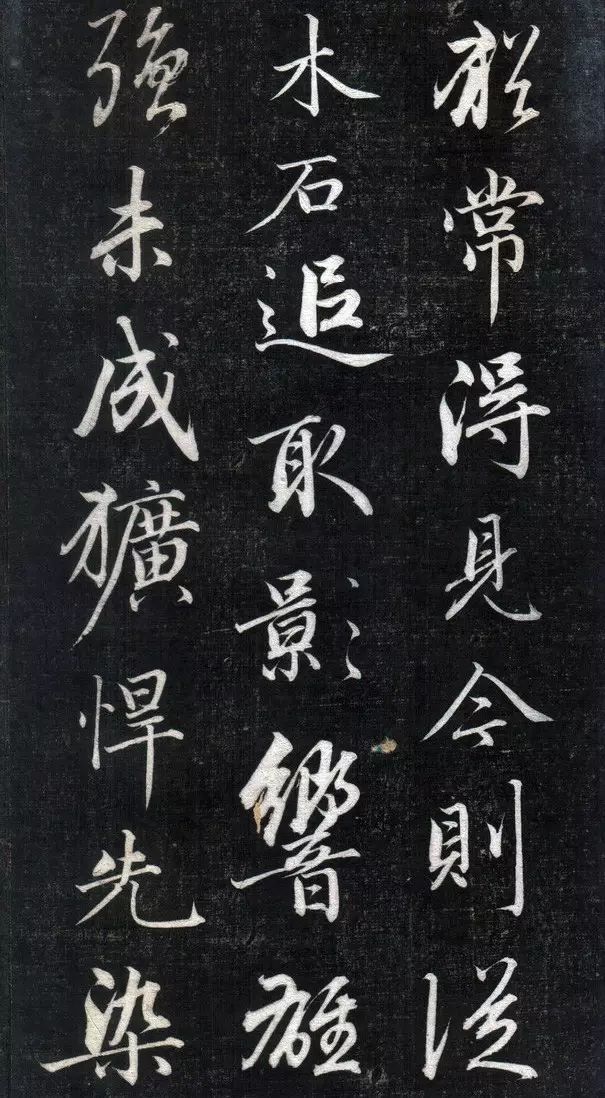 能常得見今則從
木石追取影響雄
強未成獷悍先染